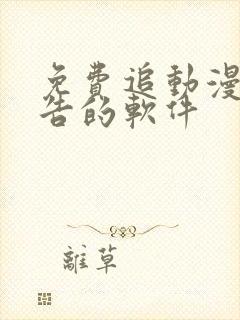 免費追動漫
告的軟件
離草